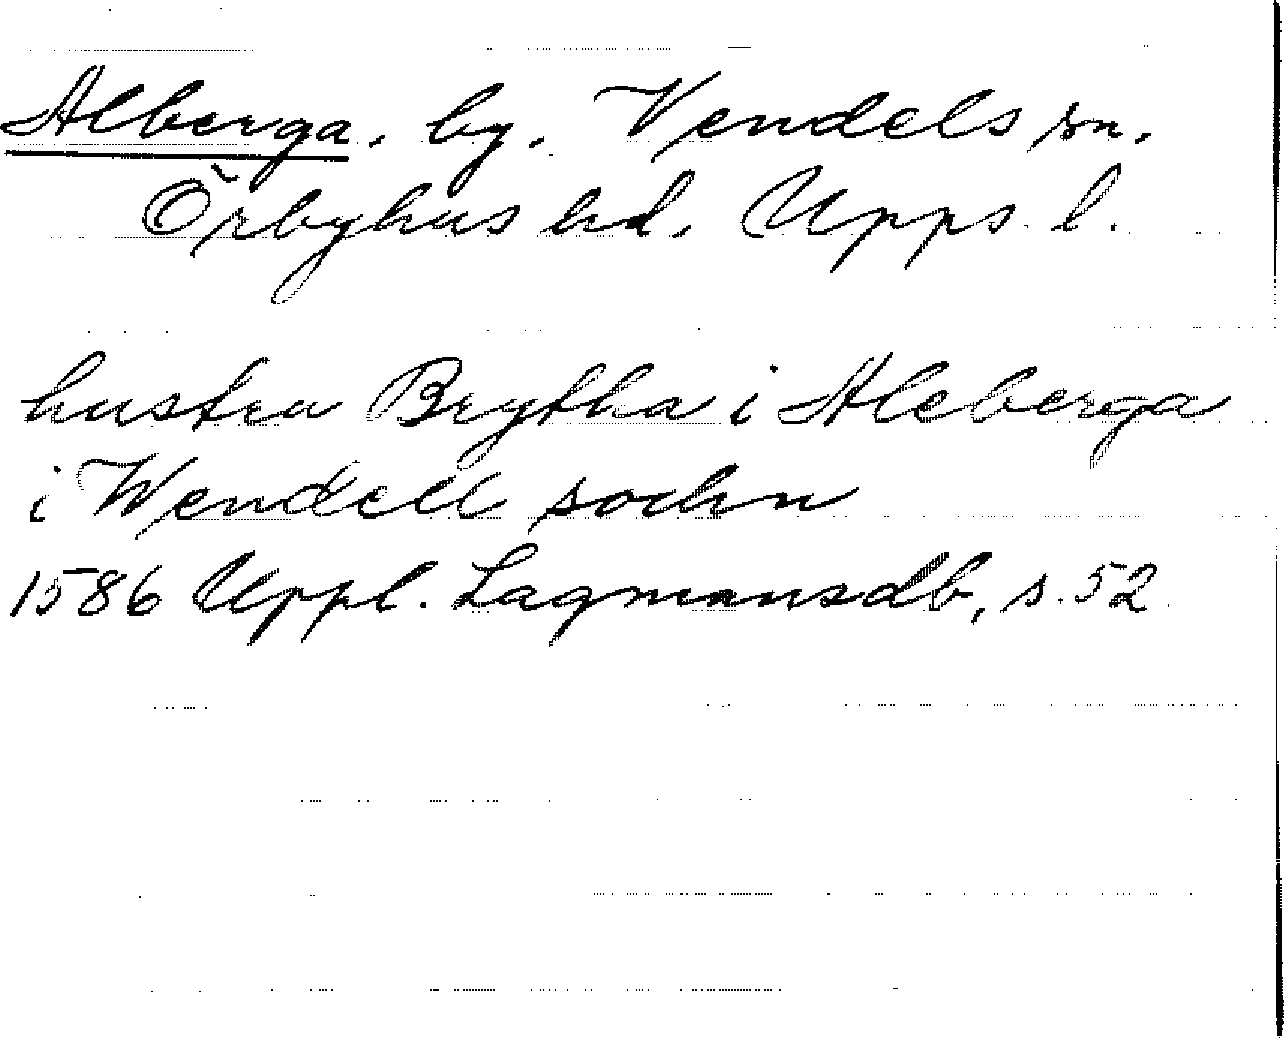 Alberga, by. Vendels sn.
Örbyhus hd. Upps. l.
hustru Brytha i Aleberga
i Wendell sochn
1586 Uppl. Lagmansdb, s. 52